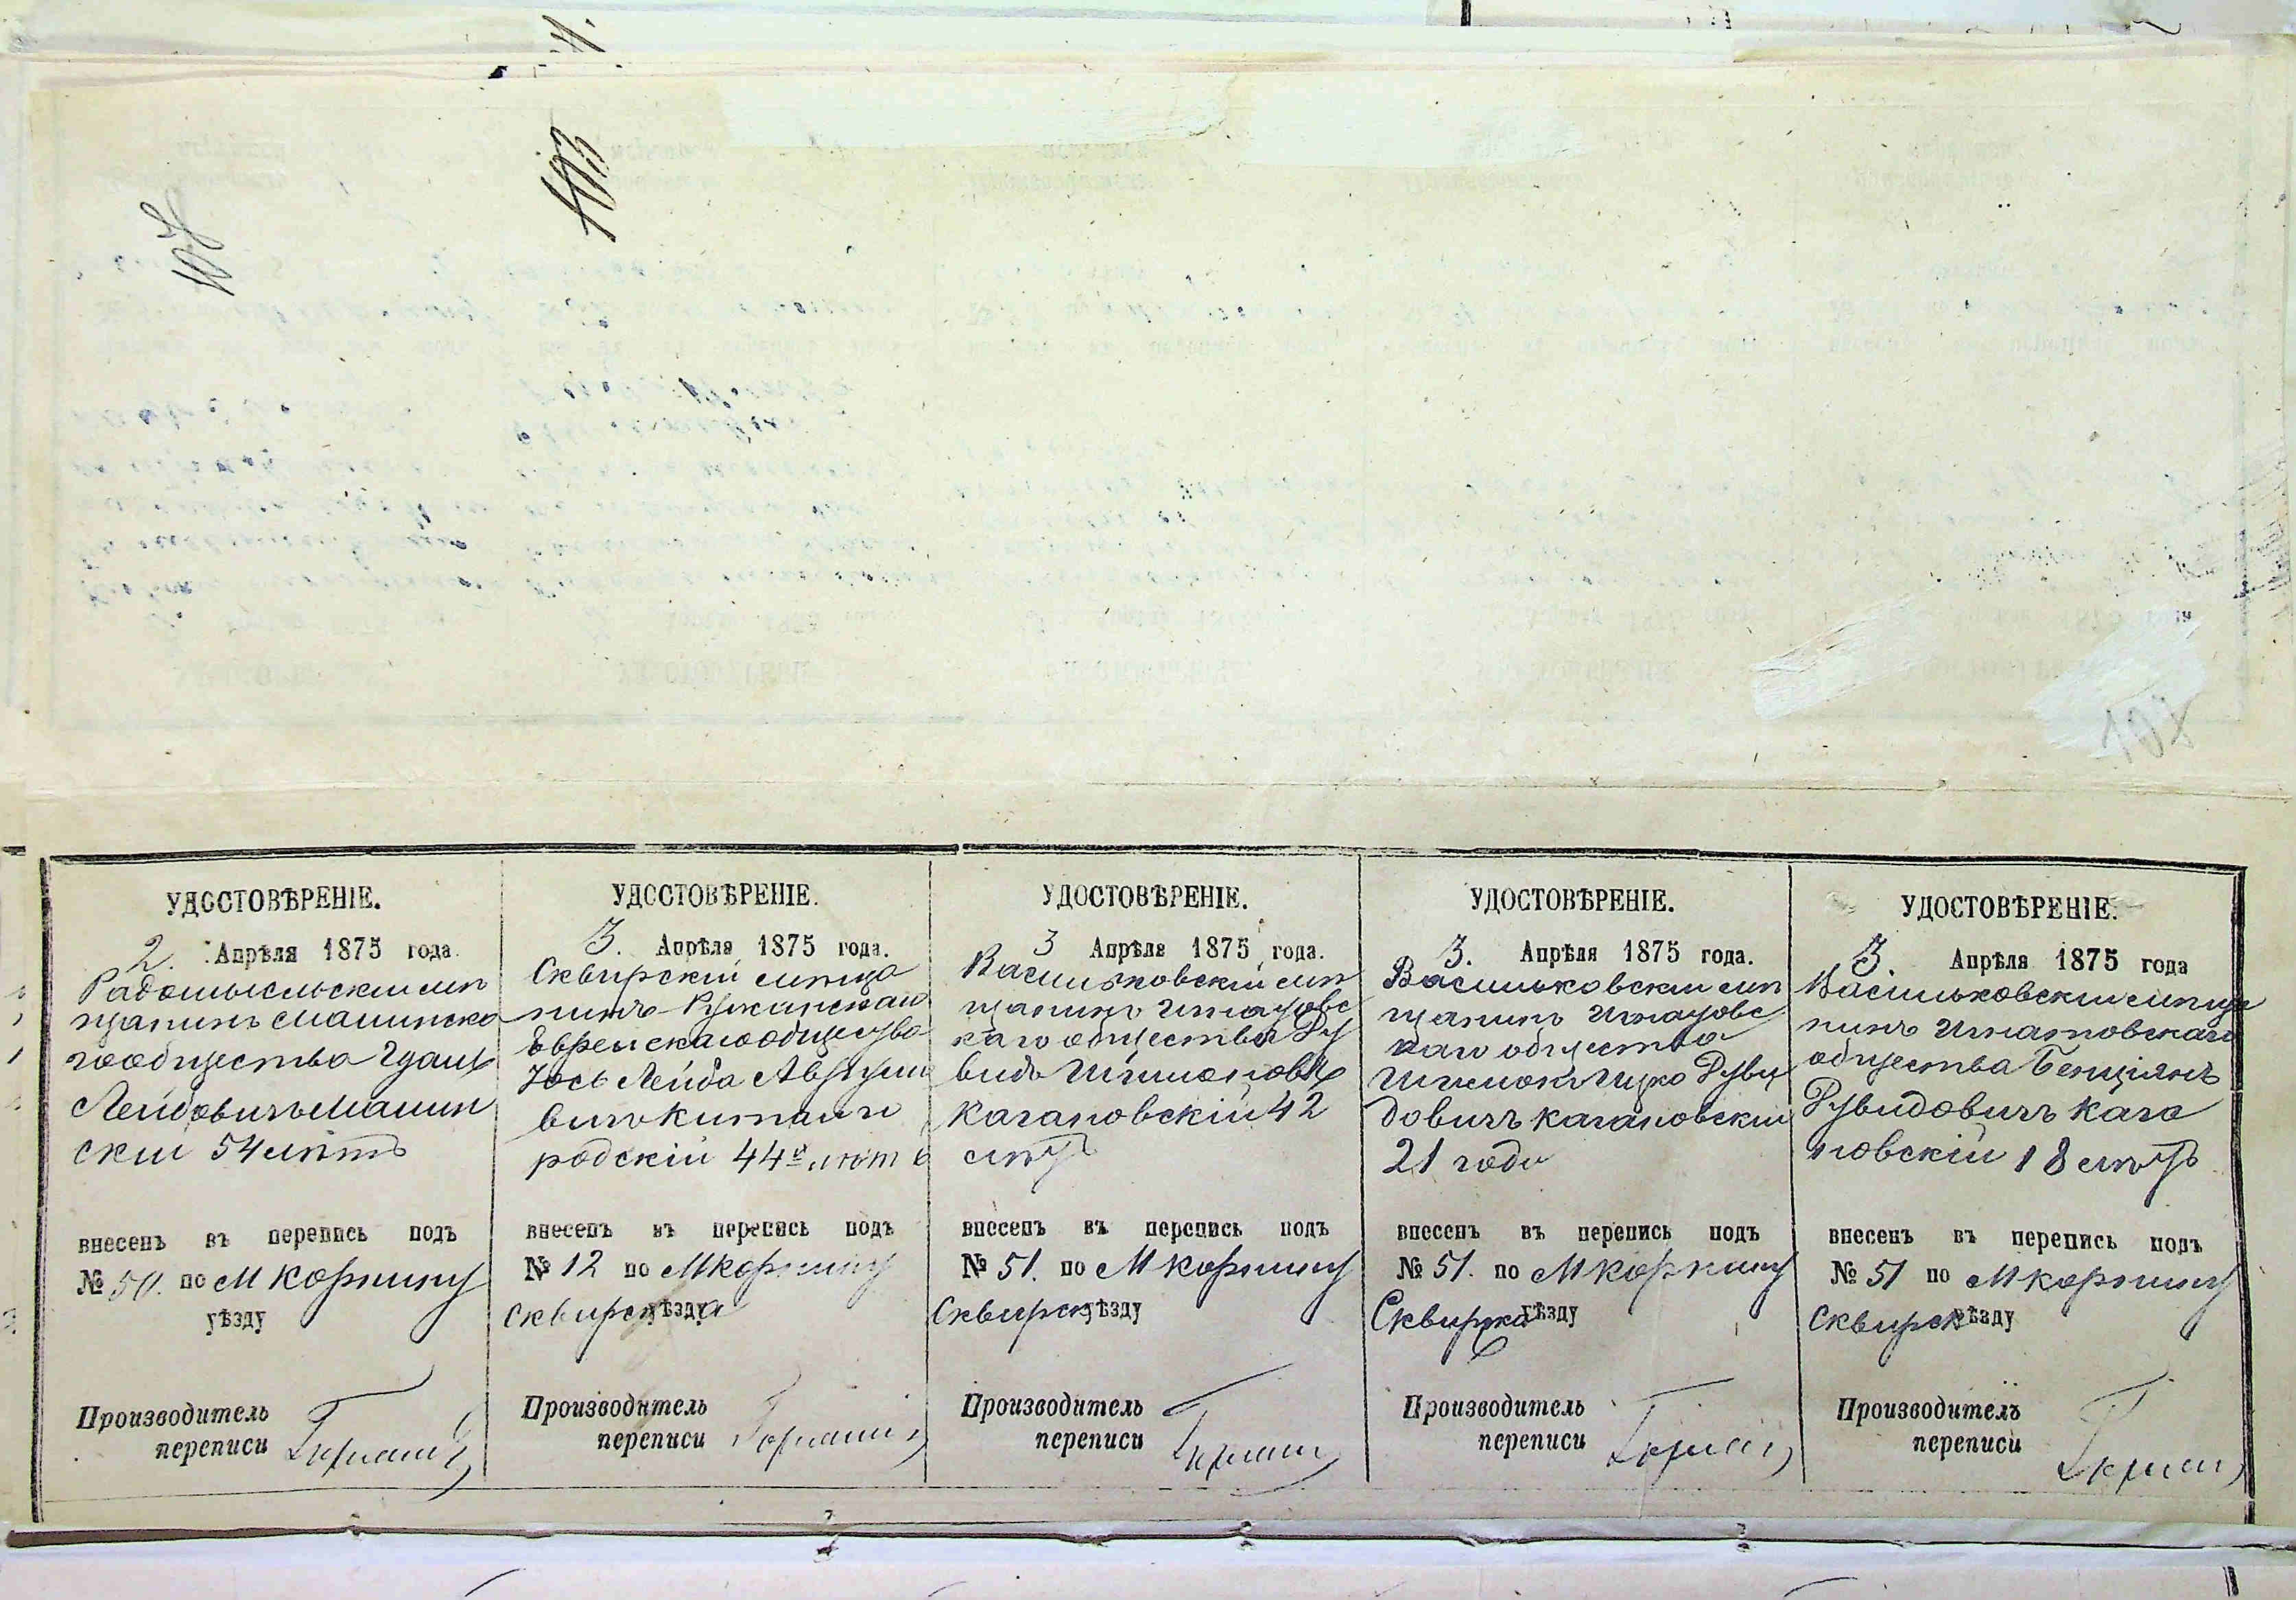 103
УДОСТОВѢРЕНІЕ.
2. Апрѣля 1875 года.
Радомысльскій мѣ
щанинъ Малинска
го общества
Лейбовичъ Малин
скій 54 лѣтъ
внесенъ въ перепись подъ
№ 50. по М Корнину
уѣзду
Производитель
переписи
УДОСТОВѢРЕНІЕ.
3. Апрѣля 1875 года.
Сквирскій мѣща
нинъ Ружинскаго
Еврейскаго общества
Іось Лейба
вичъ Китайго
родскій 44х лѣтъ
внесенъ въ перепись подъ
№ 12 по М Корнину
Сквирска уѣзду
Производитель
переписи
УДОСТОВѢРЕНІЕ.
3 Апрѣля 1875 года.
Васильковскій мѣ
щанинъ Игнатовс
каго общества Ру
видъ
Кагановскій 42
лѣтъ
внесенъ въ перепись подъ
№ 51. по М Корнину
Сквирск уѣзду
Производитель
переписи
УДОСТОВѢРЕНІЕ.
3. Апрѣля 1875 года.
Васильковскій мѣ
щанинъ Игнатовс
каго общества
Ицко Руви
довичъ Кагановскій
21 года
внесенъ въ перепись подъ
№ 51. по М Корнину
Сквирска уѣзду
Производитель
переписи
УДОСТОВѢРЕНІЕ.
3. Апрѣля 1875 года
Васильковскій мѣща
нинъ Игнатовскаго
общества Бенціянъ
Рувидовичъ Кага
новскій 18 лѣтъ
внесенъ въ перепись подъ
№ 51 по М Корнину
Сквирск уѣзду
Производитель
переписи